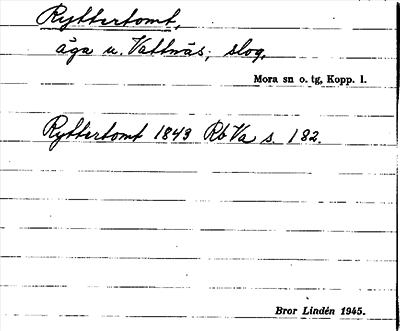 Ryttertomt,
äga u. Vattnäs, slog.
Mora sn o. tg, Kopp. l.
Ryttertomt 1849 Rb Va s. 182.
Bror Lindén 1945.